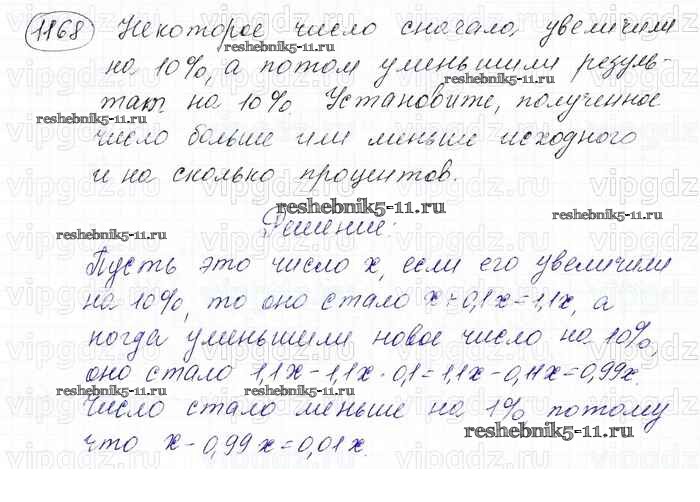 1168 Некоторое число сначала увеличили
на 10%, а потом уменьшили резуль-
тат на 10%. Установите, полученное
число больше или меньше исходного
и на сколько процентов.
Решение:
Пусть это число x, если его увеличили
на 10%, то оно стало x+0,1x=1,1x, а
когда уменьшили новое число на 10%,
оно стало 1,1x-1,1x·0,1=1,1x-0,11x=0,99x.
Число стало меньше на 1% потому
что x-0,99x=0,01x.
reshebnik5-11.ru
reshebnik5-11.ru
reshebnik5-11.ru
reshebnik5-11.ru
reshebnik5-11.ru
reshebnik5-11.ru
reshebnik5-11.ru
reshebnik5-11.ru
reshebnik5-11.ru